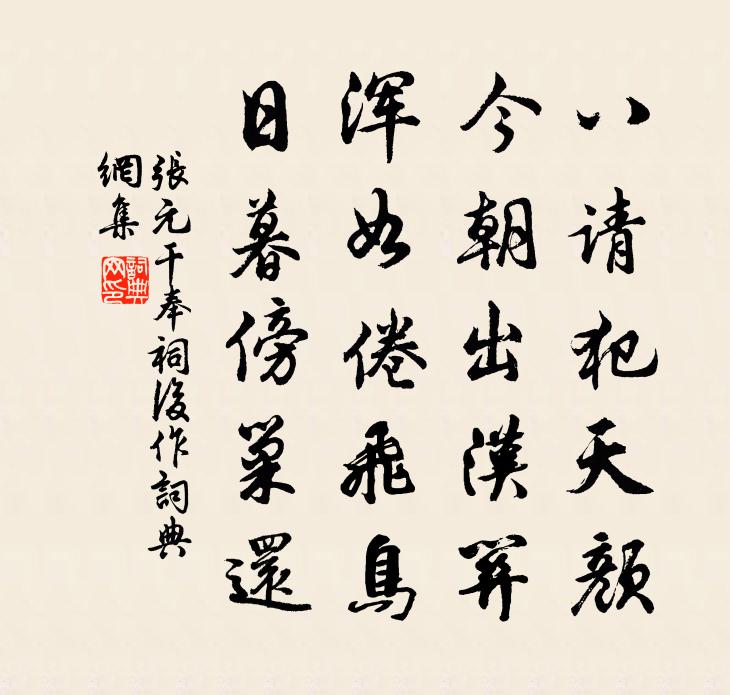 八请犯天颜
今朝出汉关
浑如倦飞鸟
日暮傍巢還
張元干奉祠後作詞典
網集
詞典
网印